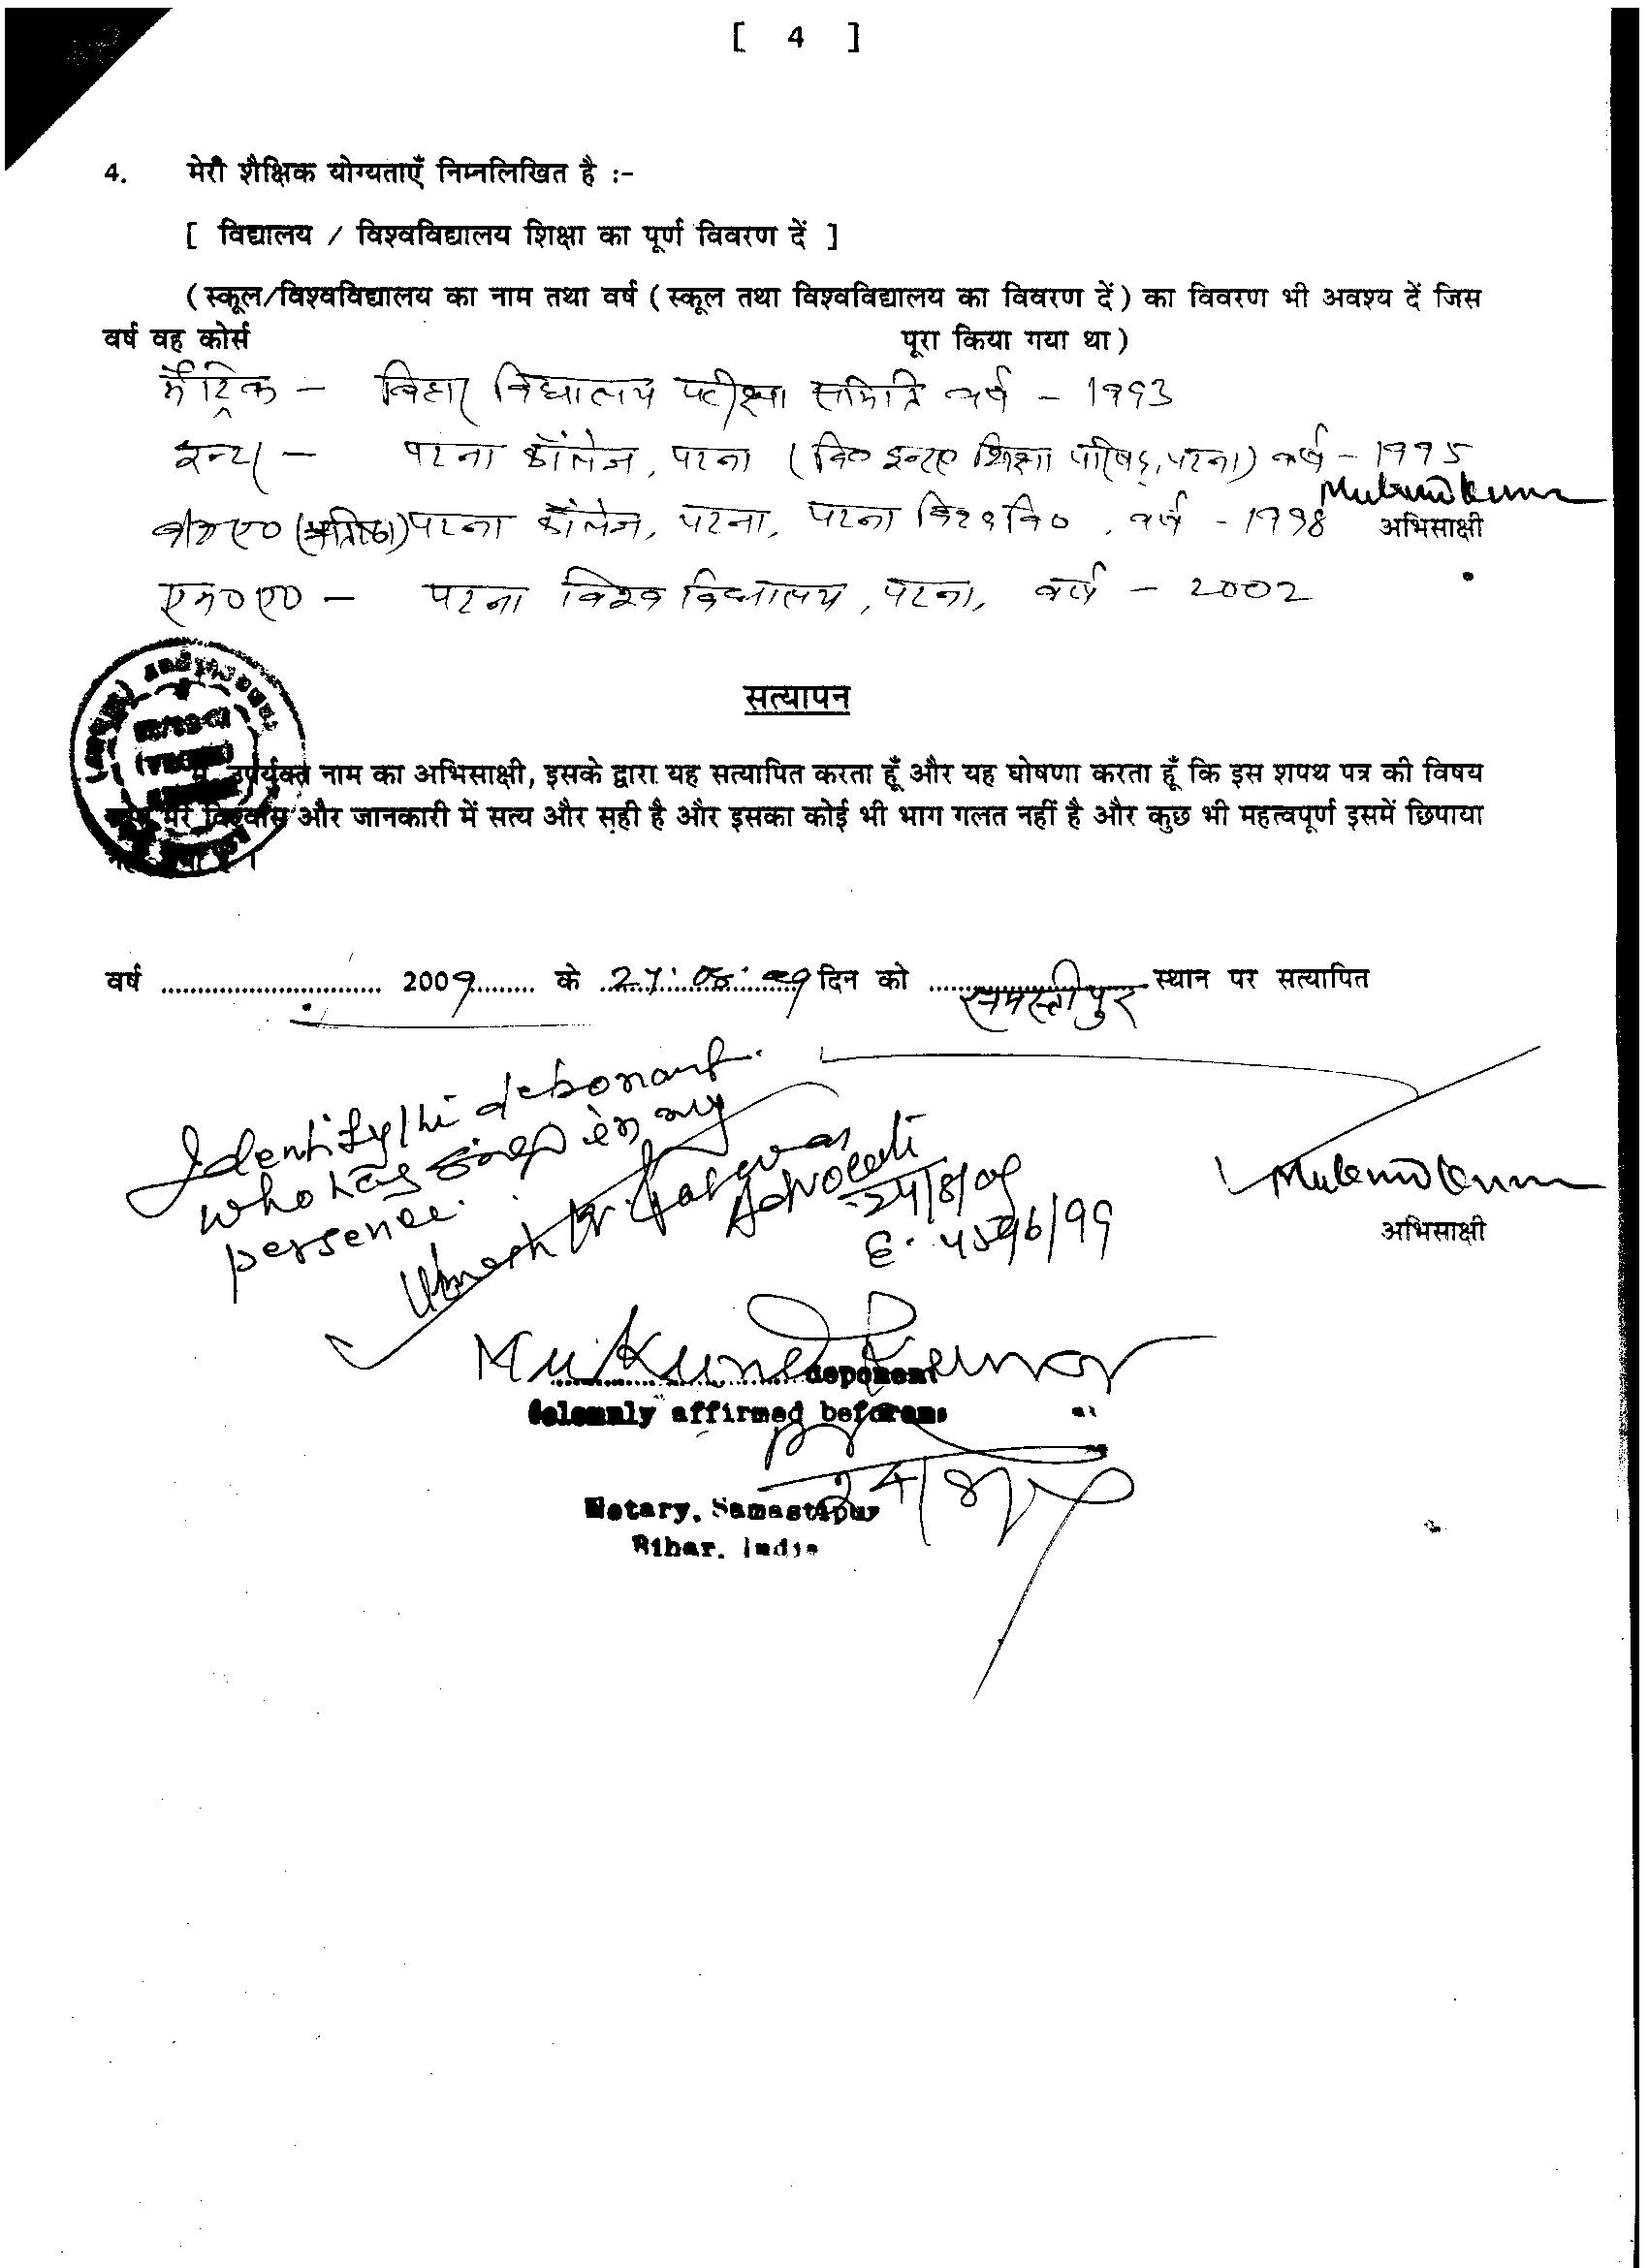 [ 4 ]
4. मेरी शैक्षिक योग्यताएँ निम्नलिखित है :-
[ विद्यालय / विश्वविद्यालय शिक्षा का पूर्ण विवरण दें ]
(स्कूल/विश्वविद्यालय का नाम तथा वर्ष (स्कूल तथा विश्वविद्यालय का विवरण दें) का विवरण भी अवश्य दें जिस
वर्ष वह कोर्स पूरा किया गया था)
मैट्रिक - बिहार विद्यालय परीक्षा समिति वर्ष - 1993
इन्टर - पटना कॉलेज, पटना (बि० इन्टर शिक्षा परिषद्, पटना) वर्ष - 1995
Mukund Kumar
बी०ए० (प्रतिष्ठा) पटना कॉलेज, पटना, पटना वि०वि०, वर्ष - 1998 अभिसाक्षी
एम०ए० - पटना विश्वविद्यालय, पटना, वर्ष - 2002
सत्यापन
उपर्युक्त नाम का अभिसाक्षी, इसके द्वारा यह सत्यापित करता हूँ और यह घोषणा करता हूँ कि इस शपथ पत्र की विषय
मेरे विश्वास और जानकारी में सत्य और सही है और इसका कोई भी भाग गलत नहीं है और कुछ भी महत्वपूर्ण इसमें छिपाया
वर्ष .............................. 2009......... के ............ दिन को समस्तीपुर स्थान पर सत्यापित
Identify the deponant
who has in my
persence.
Umesh Kr.
Advocate
24/8/09
Mukund Kumar
अभिसाक्षी
Mukund Kumar
deponent
Solemnly affirmed before me
Notary, Samastipur
Bihar. India